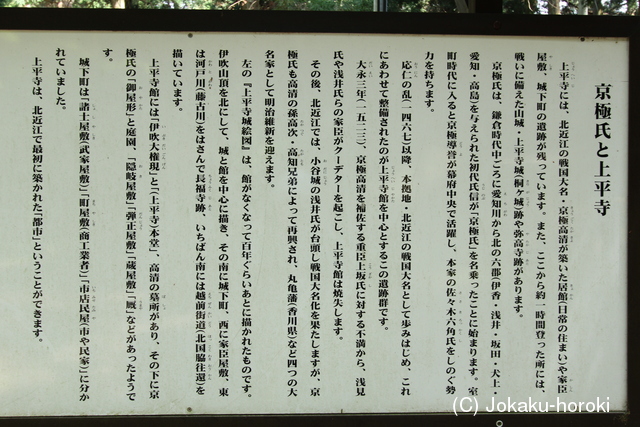 京極氏と上平寺
上平寺には、北近江の戦国大名・京極高清が築いた居館(日常の住まい)や家臣
屋敷、城下町の遺跡が残っています。また、ここから約一時間登った所には、
戦いに備えた山城・上平寺城(桐ヶ城)跡や弥高寺跡があります。
京極氏は、鎌倉時代中ごろに愛知川から北の六郡(伊香・浅井・坂田・犬上・
愛知・高島)を与えられた初代氏信が「京極氏」を名乗ったことに始まります。室
町時代に入ると京極導誉が幕府中央で活躍し、本家の佐々木六角氏をしのぐ勢
力を持ちます。
応仁の乱(一四六七)以降、本拠地・北近江の戦国大名として歩みはじめ、これ
にあわせて整備されたのが上平寺館を中心とするこの遺跡群です。
大永三年(一五二三)、京極高清を補佐する重臣上坂氏に対する不満から、浅見
氏や浅井氏らの家臣がクーデターを起こし、上平寺館は焼失します。
その後、北近江では、小谷城の浅井氏が台頭し戦国大名化を果たしますが、京
極氏も高清の孫高次・高知兄弟によって再興され、丸亀藩(香川県)など四つの大
名家として明治維新を迎えます。
左の『上平寺城絵図』は、館がなくなって百年ぐらいあとに描かれたものです。
伊吹山頂を北にして、城と館を中心に描き、その南に城下町、西に家臣屋敷、東
は河戸川(藤古川)をはさんで長福寺跡、いちばん南には越前街道(北国脇往還)を
描いています。
上平寺館には「伊吹大権現」と(上平寺)本堂」、高清の墓所があり、その下に京
極氏の「御屋形」と庭園、「隠岐屋敷」「弾正屋敷」「蔵屋敷」「厩」などがあったようで
す。
城下町は「諸士屋敷(武家屋敷)」「町屋敷(商工業者)」「市店民屋(市や民家)」に分か
れていました。
上平寺は、北近江で最初に築かれた「都市」ということができます。
(C) Jokaku-horoki